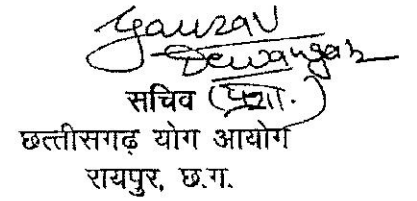 Gaurav
Dewangan
सचिव (प्रशा.)
छत्तीसगढ़ योग आयोग
रायपुर, छ.ग.